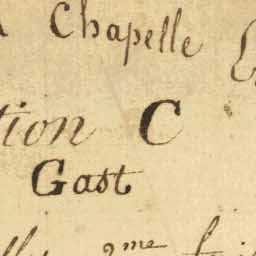 Chapelle
tion C
Gast
2me